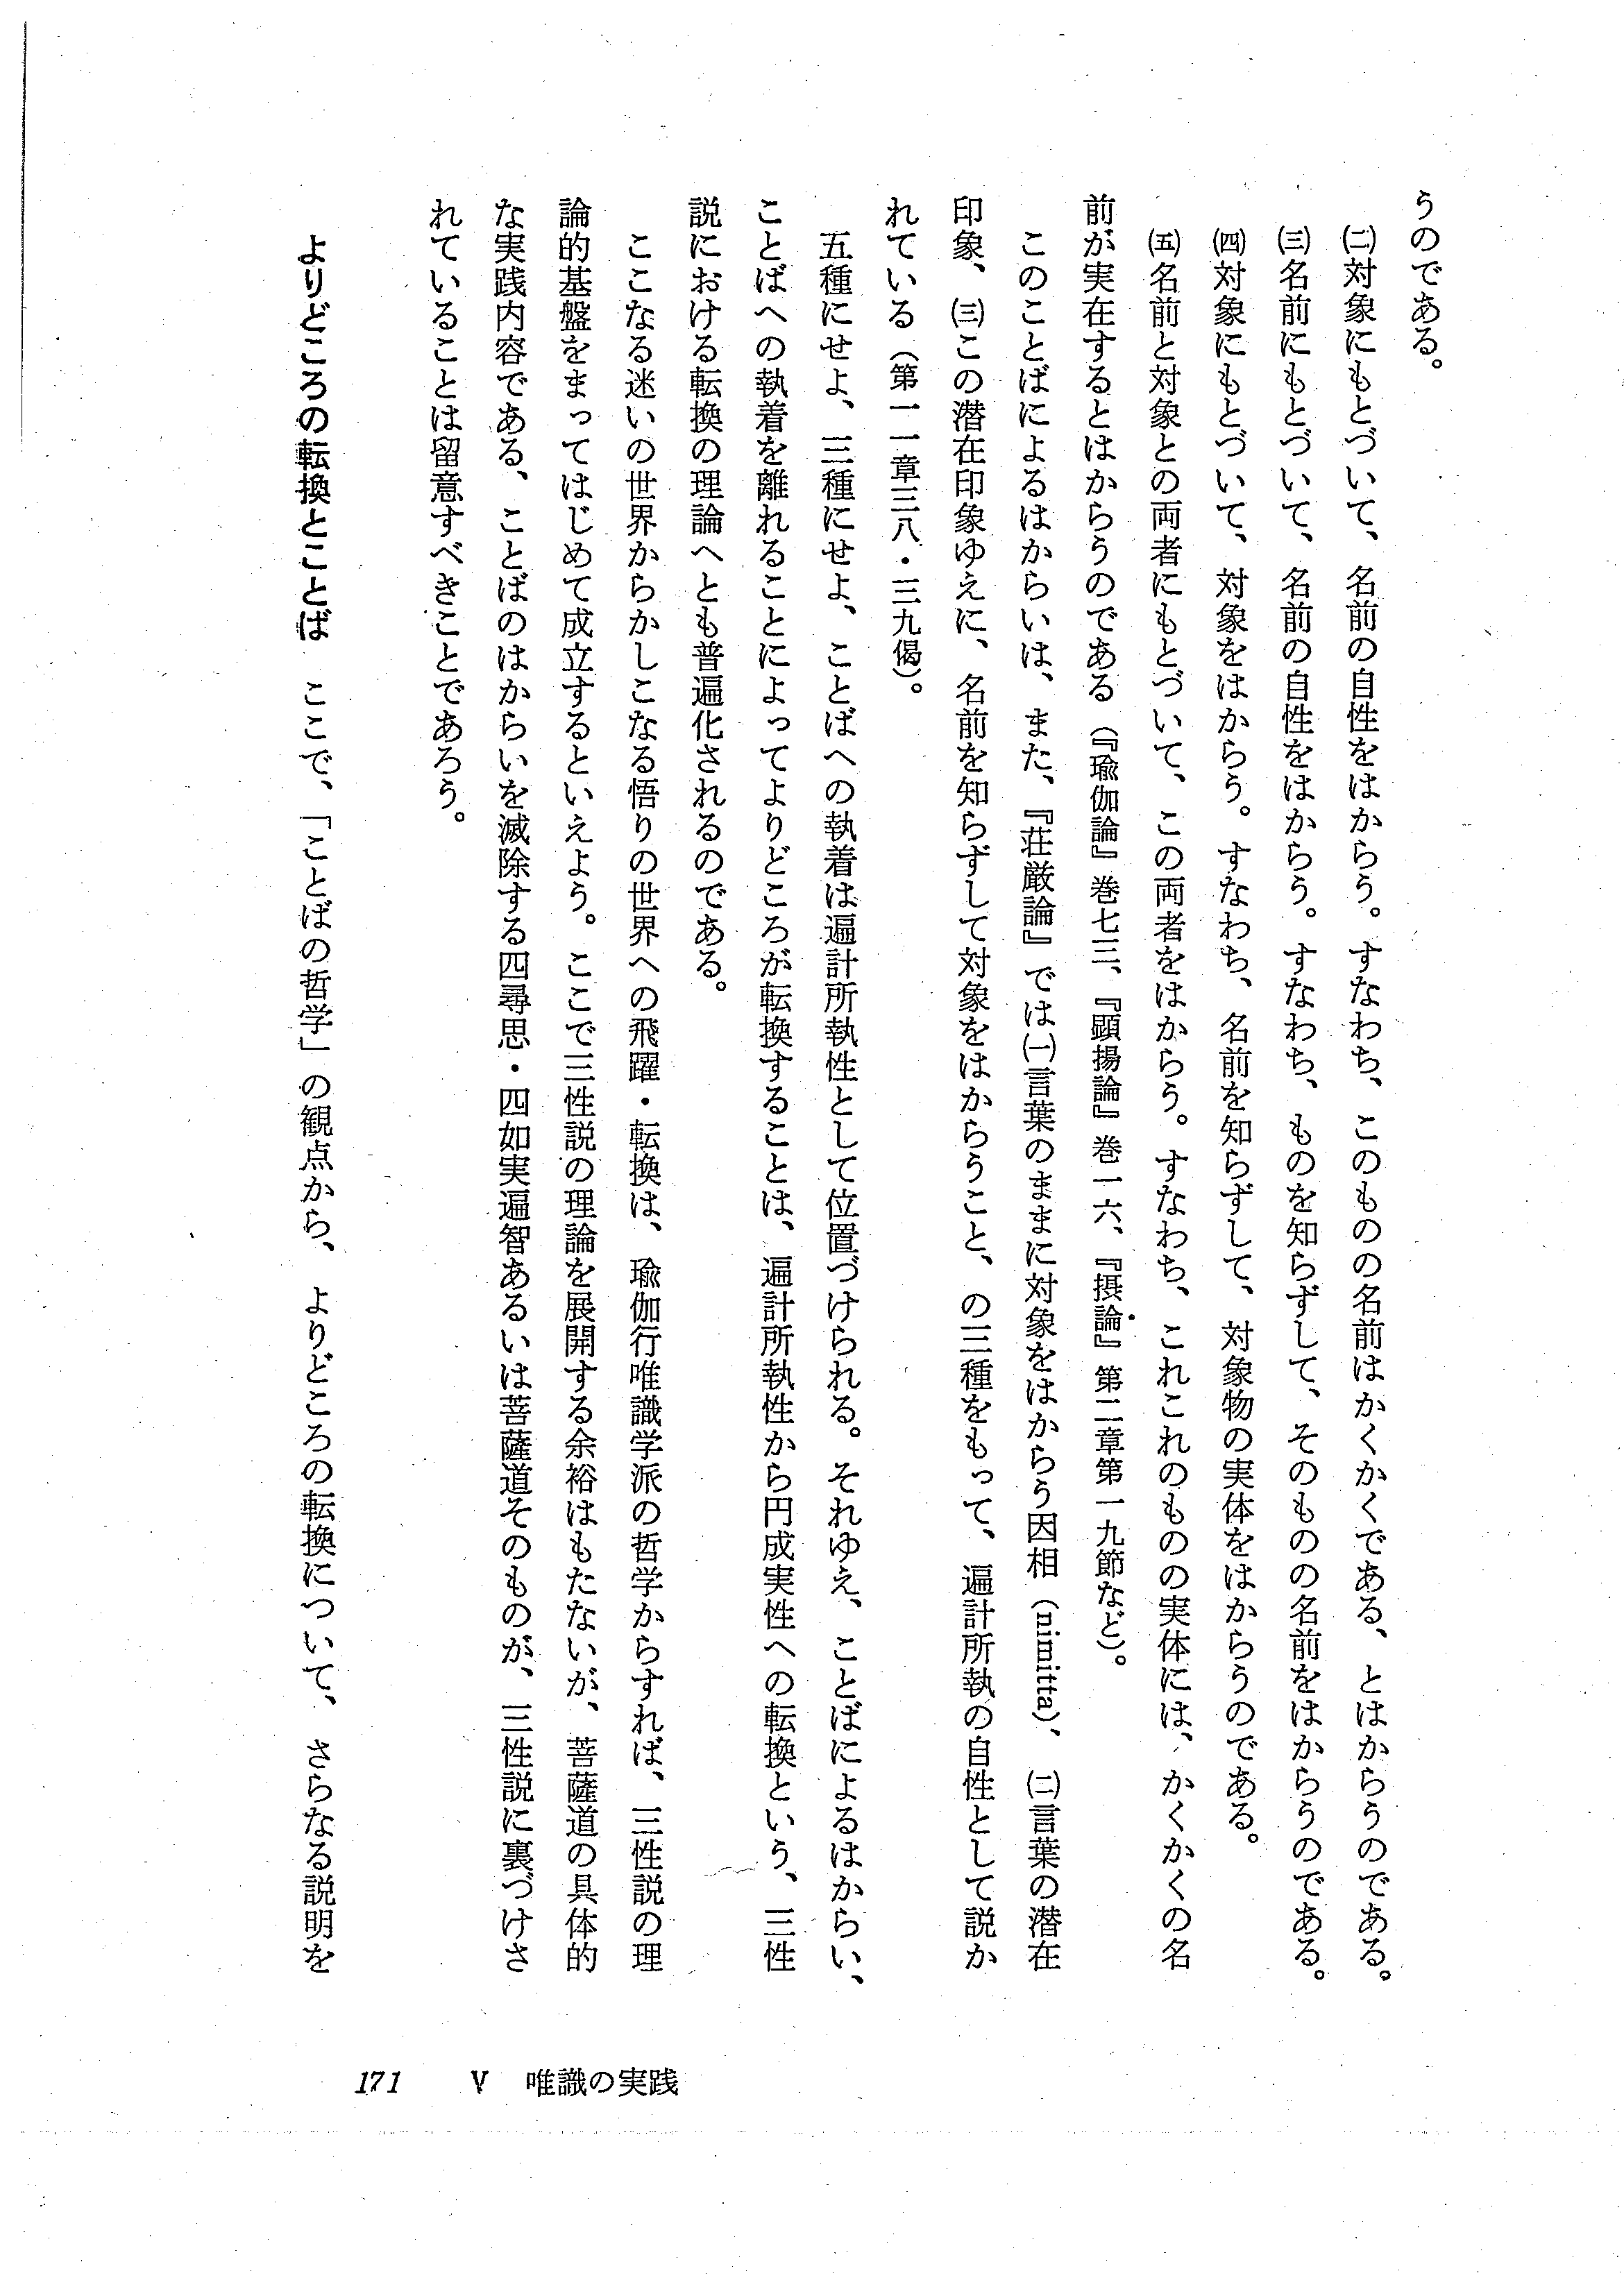 うのである。
㈡対象にもとづいて、名前の自性をはからう。すなわち、このものの名前はかくかくである、とはからうのである。
㈢名前にもとづいて、名前の自性をはからう。すなわち、ものを知らずして、そのものの名前をはからうのである。
㈣対象にもとづいて、対象をはからう。すなわち、名前を知らずして、対象物の実体をはからうのである。
㈤名前と対象との両者にもとづいて、この両者をはからう。すなわち、これこれのものの実体には、かくかくの名
前が実在するとはからうのである（『瑜伽論』巻七三、『顕揚論』巻一六、『摂論』第二章第一九節など）。
このことばによるはからいは、また、『荘厳論』では㈠言葉のままに対象をはからう因相（nimitta）、㈡言葉の潜在
印象、㈢この潜在印象ゆえに、名前を知らずして対象をはからうこと、の三種をもって、遍計所執の自性として説か
れている（第一一章三八・三九偈）。
五種にせよ、三種にせよ、ことばへの執着は遍計所執性として位置づけられる。それゆえ、ことばによるはからい、
ことばへの執着を離れることによってよりどころが転換することは、遍計所執性から円成実性への転換という、三性
説における転換の理論へとも普遍化されるのである。
ここなる迷いの世界からかしこなる悟りの世界への飛躍・転換は、瑜伽行唯識学派の哲学からすれば、三性説の理
論的基盤をまってはじめて成立するといえよう。ここで三性説の理論を展開する余裕はもたないが、菩薩道の具体的
な実践内容である、ことばのはからいを滅除する四尋思・四如実遍智あるいは菩薩道そのものが、三性説に裏づけさ
れていることは留意すべきことであろう。
よりどころの転換とことば　ここで、「ことばの哲学」の観点から、よりどころの転換について、さらなる説明を
171　V　唯識の実践